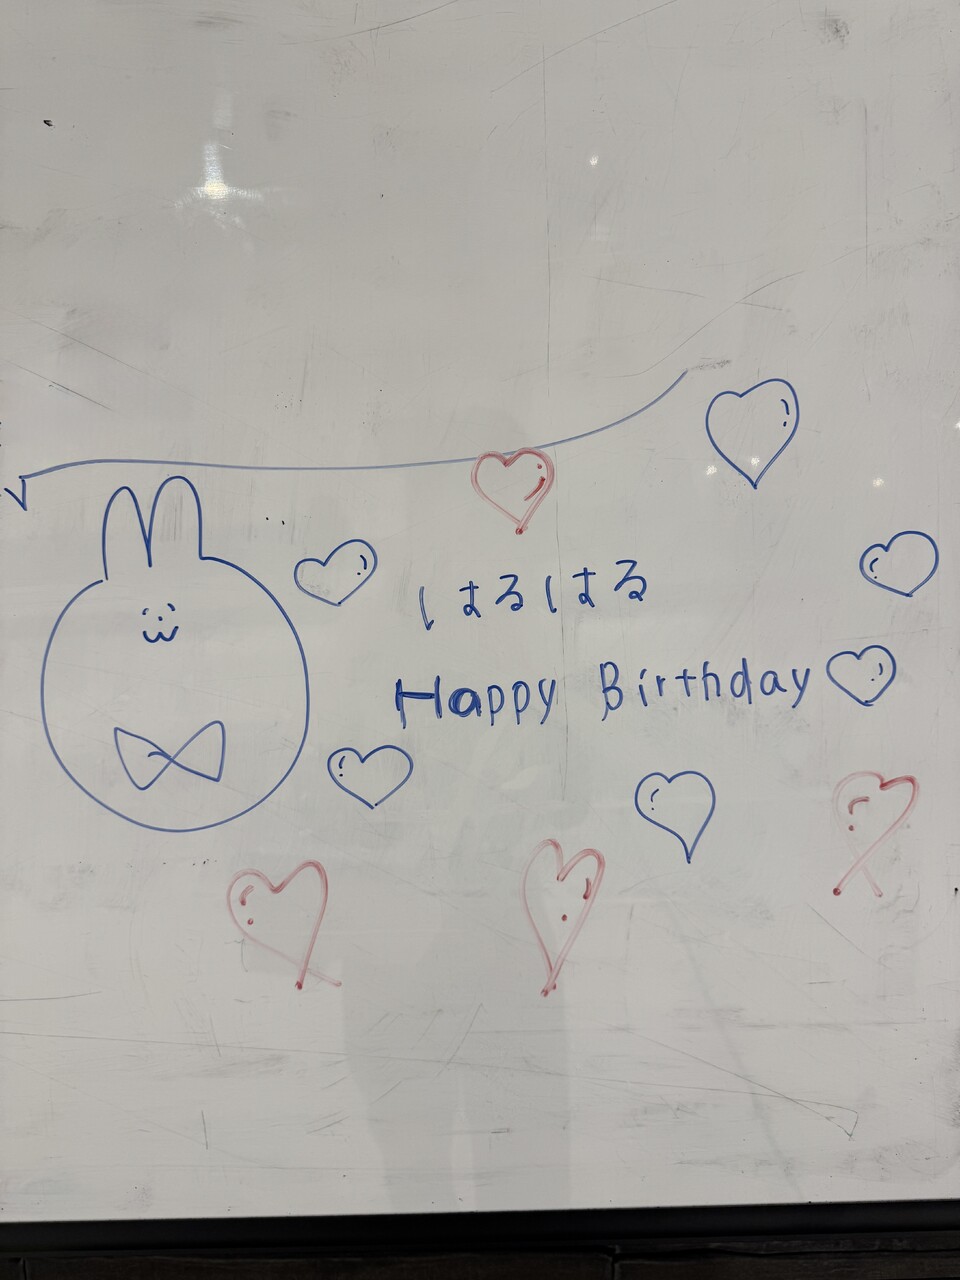 はるはる
Happy Birthday